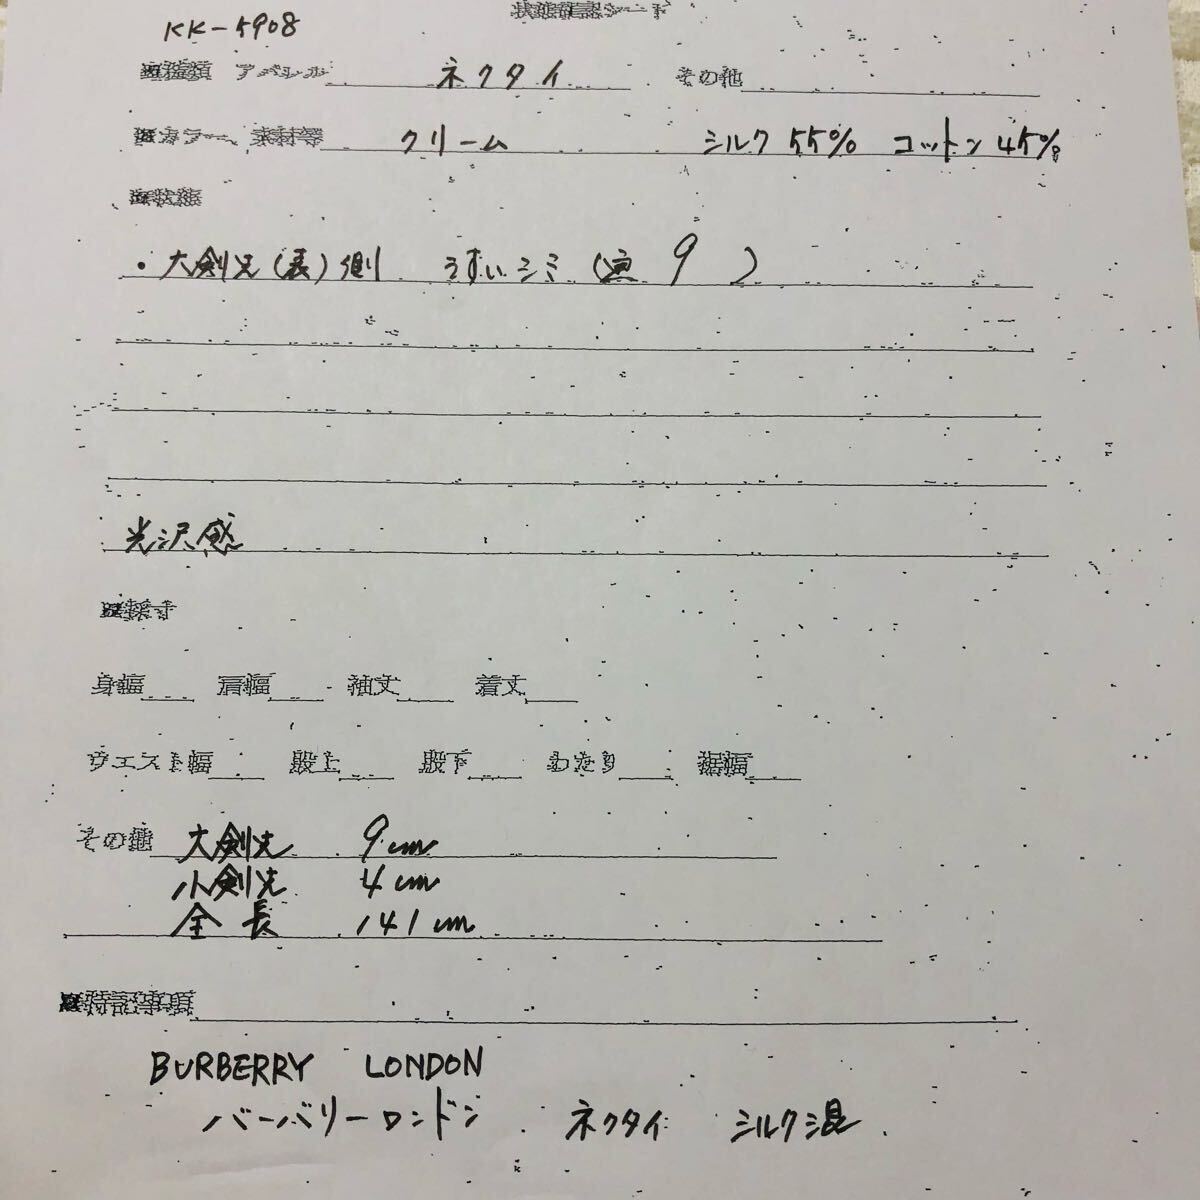 KK-5908
状態確認シート
■種類 アパレル ネクタイ その他
■カラー、素材等 クリーム シルク 55% コットン 45%
■状態
・大剣先(表)側 うすいシミ(画 9 )
光沢感
■採寸
身幅 肩幅 袖丈 着丈
ウエスト幅 股上 股下 わたり 裾幅
その他 大剣先 9cm
小剣先 4cm
全長 141cm
■特記事項
BURBERRY LONDON
バーバリーロンドン ネクタイ シルク混